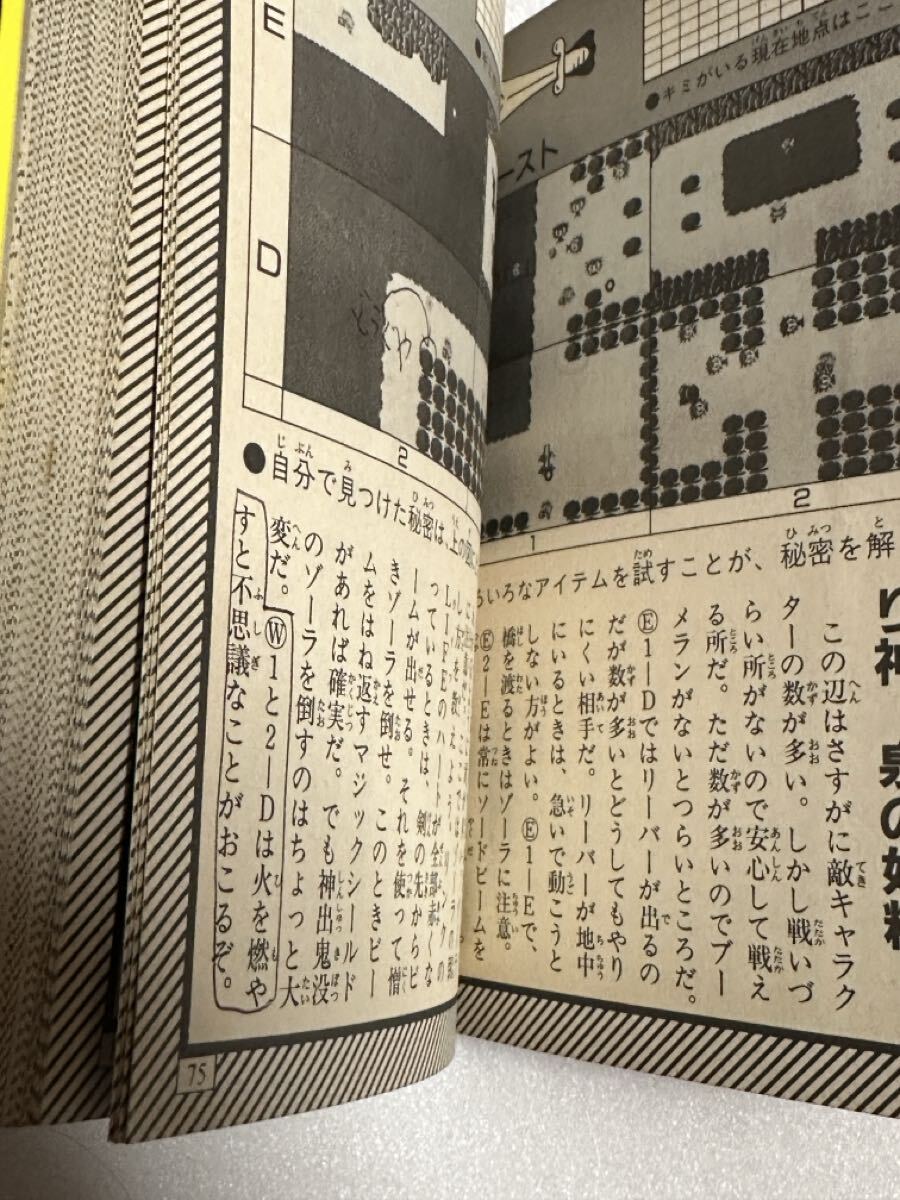 ●キミがいる現在地点はここ
ースト
1
2
ろいろなアイテムを試すことが、秘密を解
り神
泉の妖精
この辺はさすがに敵キャラク
ターの数が多い。しかし戦いづ
らい所がないので安心して戦え
る所だ。ただ数が多いのでブー
メランがないとつらいところだ。
Ⓔ1―Dではリーバーが出るの
だが数が多いとどうしてもやり
にくい相手だ。リーバーが地中
にいるときは、急いで動こうと
しない方がよい。Ⓔ1―Eで、
橋を渡るときはゾーラに注意。
Ⓔ2―Eは常にソードビームを
E
D
2
●自分で見つけた秘密は、上の
LIFEのハートが全部赤くな
っているときは、剣の先からビ
ームが出せる。それを使って憎
きゾーラを倒せ。このときビー
ムをはね返すマジックシールド
があれば確実だ。でも神出鬼没
のゾーラを倒すのはちょっと大
変だ。Ⓦ1と2―Dは火を燃や
すと不思議なことがおこるぞ。
75